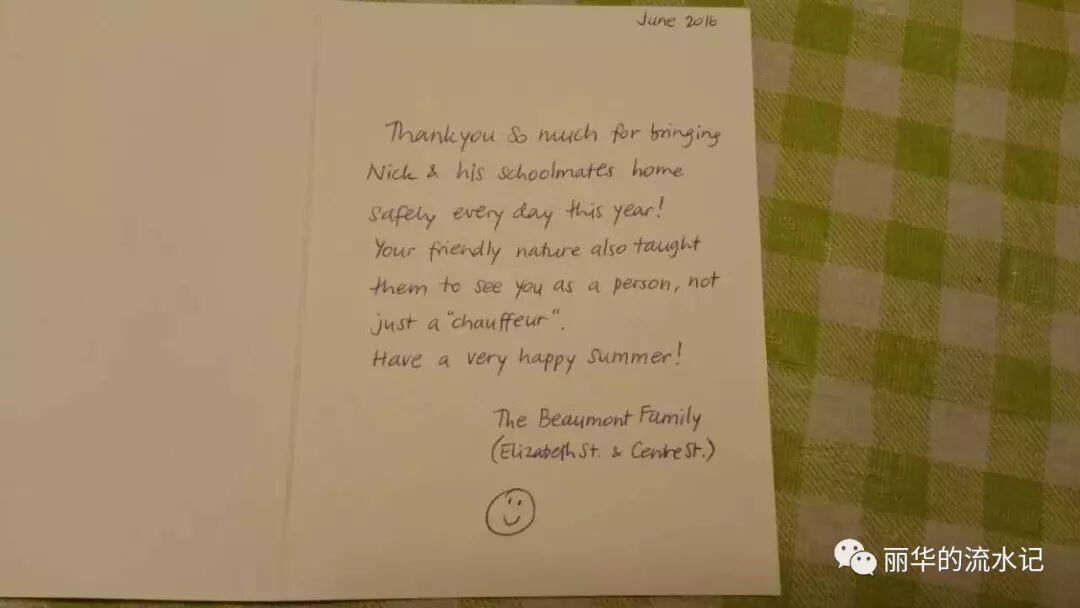 June 2016
Thank you so much for bringing
Nick & his schoolmates home
safely every day this year!
Your friendly nature also taught
them to see you as a person, not
just a "chauffeur".
Have a very happy summer!
The Beaumont Family
(Elizabeth St. & Centre St.)
丽华的流水记